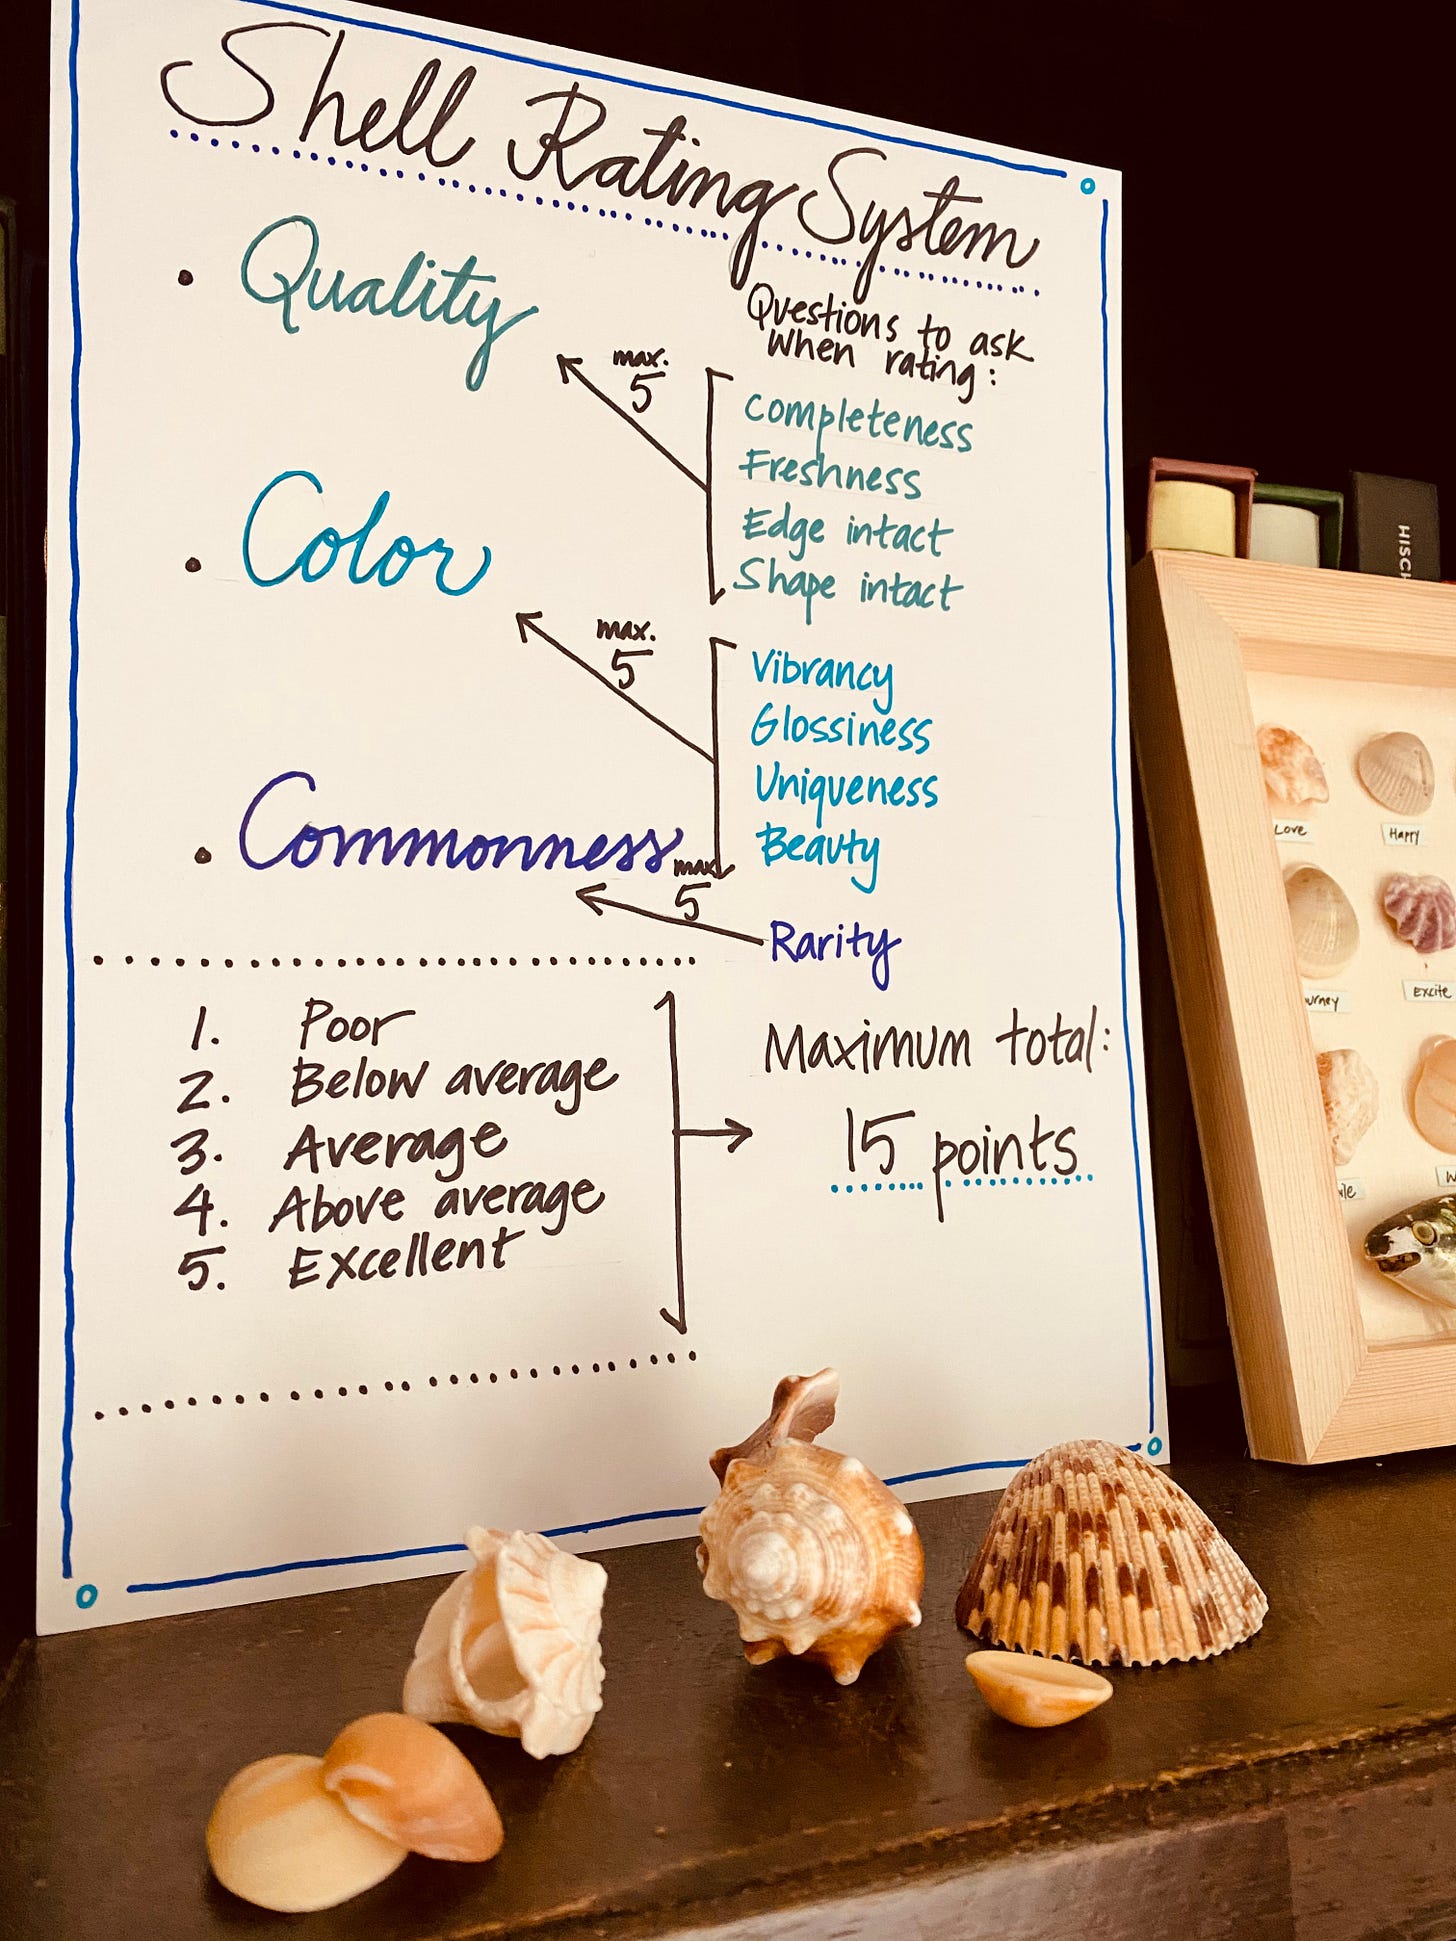 Shell Rating System
• Quality
Questions to ask
when rating:
max.
5
Completeness
Freshness
Edge intact
Shape intact
• Color
max.
5
Vibrancy
Glossiness
Uniqueness
Beauty
• Commonness
max.
5
Rarity
1. Poor
2. Below average
3. Average
4. Above average
5. Excellent
Maximum total:
15 points
HISC
Love
Happy
urney
Excite